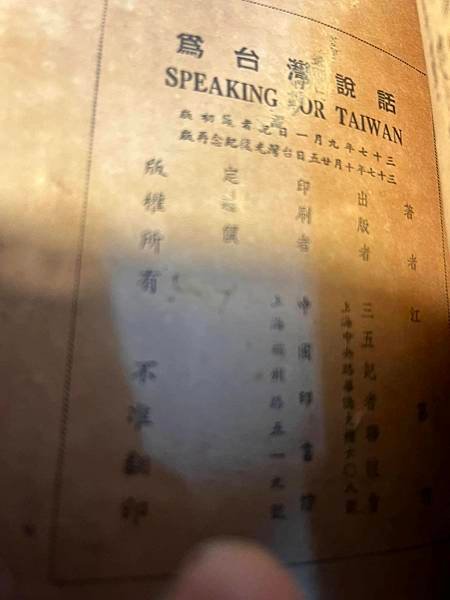 為台灣說話
SPEAKING FOR TAIWAN
三十七年九月一日記者節初版
三十七年十月廿五日台灣光復紀念再版
著者 江
出版者 三五記者聯誼會
上海中央路華僑大樓六〇八號
印刷者 中國印書館
上海 路五一九號
定
版權所有 不准翻印